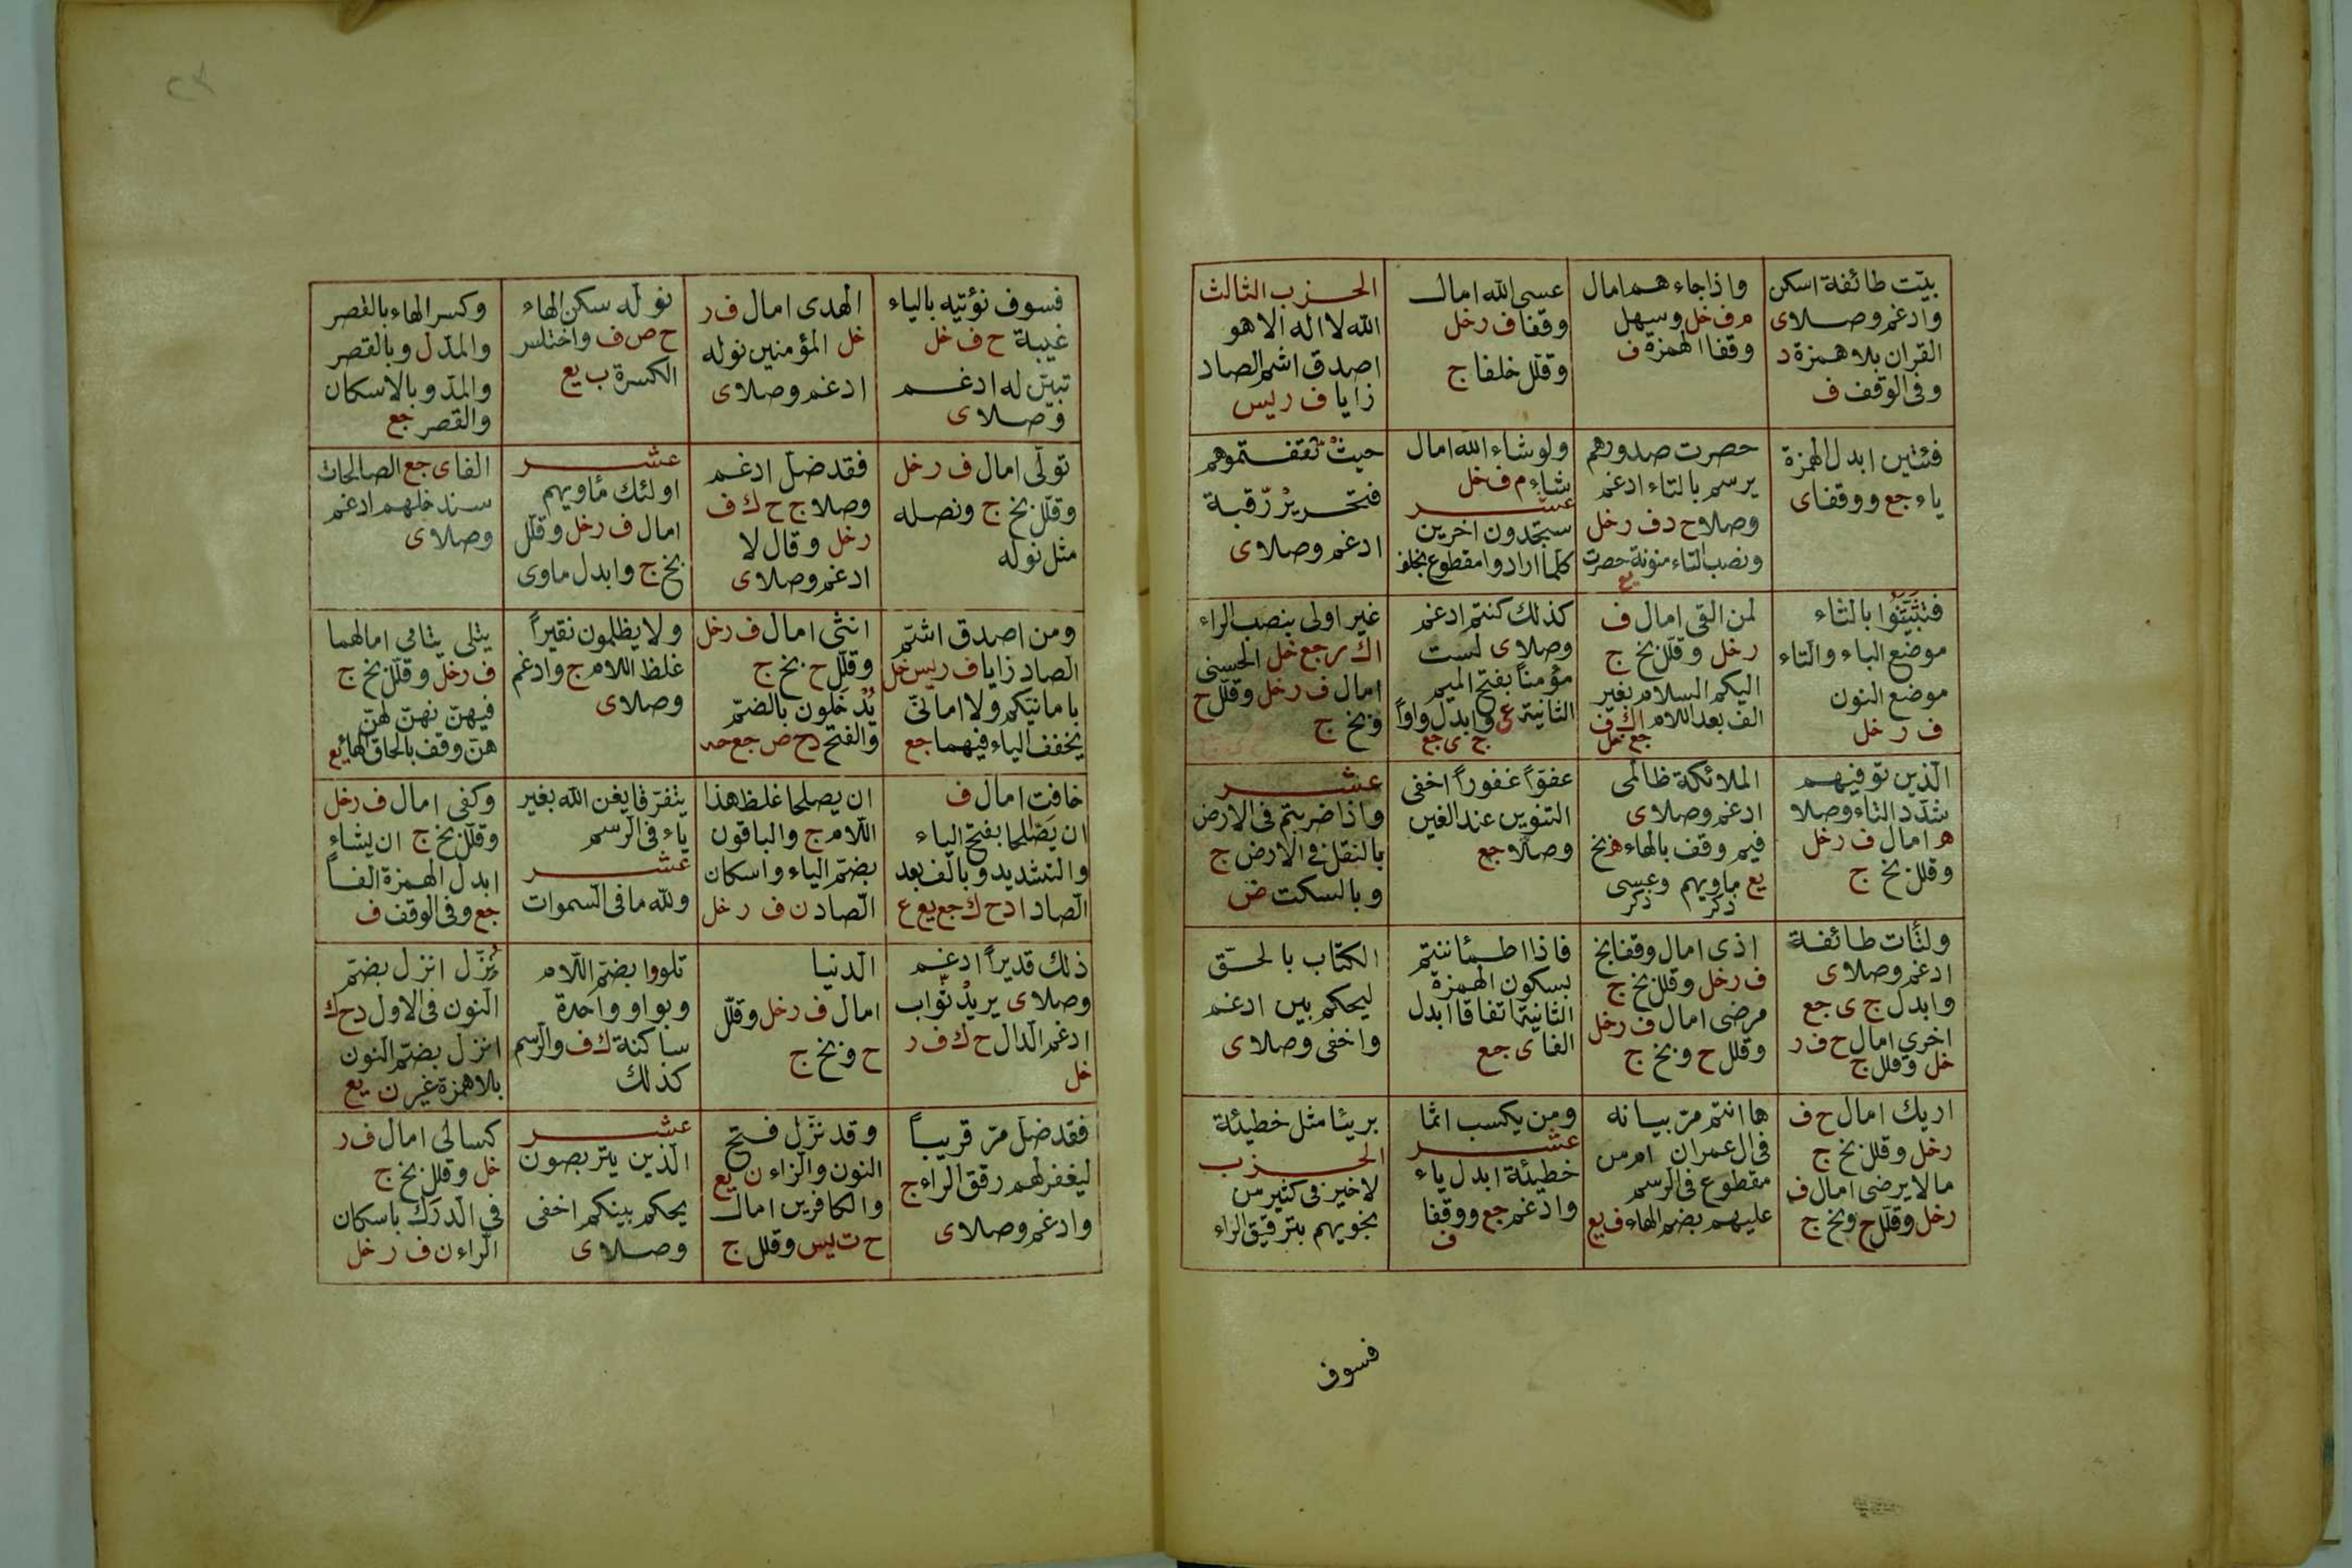 بيّت طائفة اسكن
وادغم وصلا ى
القران بلا همزة د
وفى الوقف ف
واذا جاءهم امال
م ف خل وسهل
وقفا الهمزة ف
عسى الله امال
وقفا ف ر خل
وقلل خلفا ج
الحزب الثالث
الله لا اله الا هو
اصدق اشم الصاد
زايا ف ر يس
فئتين ابدل الهمزة
ياء جع ووقفا ى
حصرت صدورهم
يرسم بالتاء ادغم
وصلا ح د ف ر خل
ونصب التاء منونة حصرت
يع
ولو شاء الله امال
شاء م ف خل
عشر
ستجدون اخرين
كلما ارادوا مقطوع بخلف
حيث ثقفتموهم
فتحرير رّقبة
ادغم وصلا ى
فتثبّتوا بالثاء
موضع الباء والتاء
موضع النون
ف ر خل
لمن القى امال ف
ر خل وقلل بخ ج
اليكم السلام بغير
الف بعد اللام ا ك ف
جع خل
كذلك كنتم ادغم
وصلا ى لست
مؤمناً بفتح الميم
الثانية ع وابدل واواً
ج ى جع
غير اولى بنصب الراء
ا ك ر جع خل الحسنى
امال ف ر خل وقلل ح
وبخ ج
الّذين توفيهم
شدّد التاء وصلا
ه امال ف ر خل
وقلل بخ ج
الملائكة ظالمى
ادغم وصلا ى
فيم وقف بالهاء ه بخ
يع ماويهم وعسى
ذكر ذكر
عفوّاً غفوراً اخفى
التنوين عند الغين
وصلا جع
عشر
واذا ضربتم فى الارض
بالنقل فى الارض ج
وبالسكت ض
ولتأت طائفة
ادغم وصلا ى
وابدل ج ى جع
اخرى امال ح ف ر
خل وقلل ج
اذى امال وقفا بخ
ف ر خل وقلل بخ ج
مرضى امال ف ر خل
وقلل ح وبخ ج
فاذا اطمأننتم
بسكون الهمزة
الثانية اتفاقا ابدل
الفا ى جع
الكتاب بالحقّ
ليحكم بين ادغم
واخفى وصلا ى
اريك امال ح ف
ر خل وقلل بخ ج
ما لا يرضى امال ف
ر خل وقلل ح وبخ ج
ها انتم مرّ بيانه
فى ال عمران ام من
مقطوع فى الرسم
عليهم بضم الهاء ف يع
ومن يكسب اثما
عشر
خطيئة ابدل ياء
وادغم جع ووقفا
ف
بريئا مثل خطيئة
الحزب
لا خير فى كثير من
نجويهم بترقيق الراء
فسوف
فسوف نؤتيه بالياء
غيبة ح ف خل
تبيّن له ادغم
وصلا ى
الهدى امال ف ر
خل المؤمنين نوله
ادغم وصلا ى
نولّه سكن الهاء
ح ص ف واختلس
الكسرة ب يع
وكسر الهاء بالقصر
والمدّ ل وبالقصر
والمدّ وبالاسكان
والقصر جع
تولّى امال ف ر خل
وقلّل بخ ج ونصله
مثل نوله
فقد ضلّ ادغم
وصلا ج ح ك ف
ر خل وقال لا
ادغم وصلا ى
عشر
اولئك مأويهم
امال ف ر خل وقلّل
بخ ج وابدل ماوى
الفا ى جع الصالحات
سندخلهم ادغم
وصلا ى
ومن اصدق اشمّ
الصاد زايا ف ر يس خل
بامانيّكم ولا امانىّ
يخفف الياء فيهما جع
انثى امال ف ر خل
وقلل ح بخ ج
يُدْخَلون بالضمّ
والفتح د ح ص جع حه
ولا يظلمون نقيراً
غلظ اللام ج وادغم
وصلا ى
يتلى يتامى امالهما
ف ر خل وقلل بخ ج
فيهنّ نهنّ لهنّ
هنّ وقف بالحاق الهاء يع
خافت امال ف
ان يَصّالحا بفتح الياء
والتشديد وبالف بعد
الصاد ا د ح ك جع يع ع
ان يصلحا غلظ هذا
اللام ج والباقون
بضمّ الياء واسكان
الصاد ن ف ر خل
يتفرّقا يغن الله بغير
ياء فى الرسم
عشر
ولله ما فى السموات
وكفى امال ف ر خل
وقلل بخ ج ان يشاء
ابدل الهمزة الفاً
جع وفى الوقف ف
ذلك قديراً ادغم
وصلا ى يريدْ ثّواب
ادغم الدال ح ك ف ر
خل
الدنيا
امال ف ر خل وقلّل
ح وبخ ج
تلووا بضمّ اللام
وبواو واحدة
ساكنة ك ف والرسم
كذلك
نُزّل انزل بضمّ
النون فى الاول د ح ك
انزل بضمّ النون
بلا همزة غير ن يع
فقد ضلّ مرّ قريباً
ليغفر لهم رقق الراء ج
وادغم وصلا ى
وقد نزّل فتح
النون والزاء ن يع
والكافرين امال
ح ت يس وقلل ج
عشر
الّذين يتربصون
يحكم بينكم اخفى
وصلا ى
كسالى امال ف ر
خل وقلل بخ ج
فى الدرك باسكان
الراء ن ف ر خل